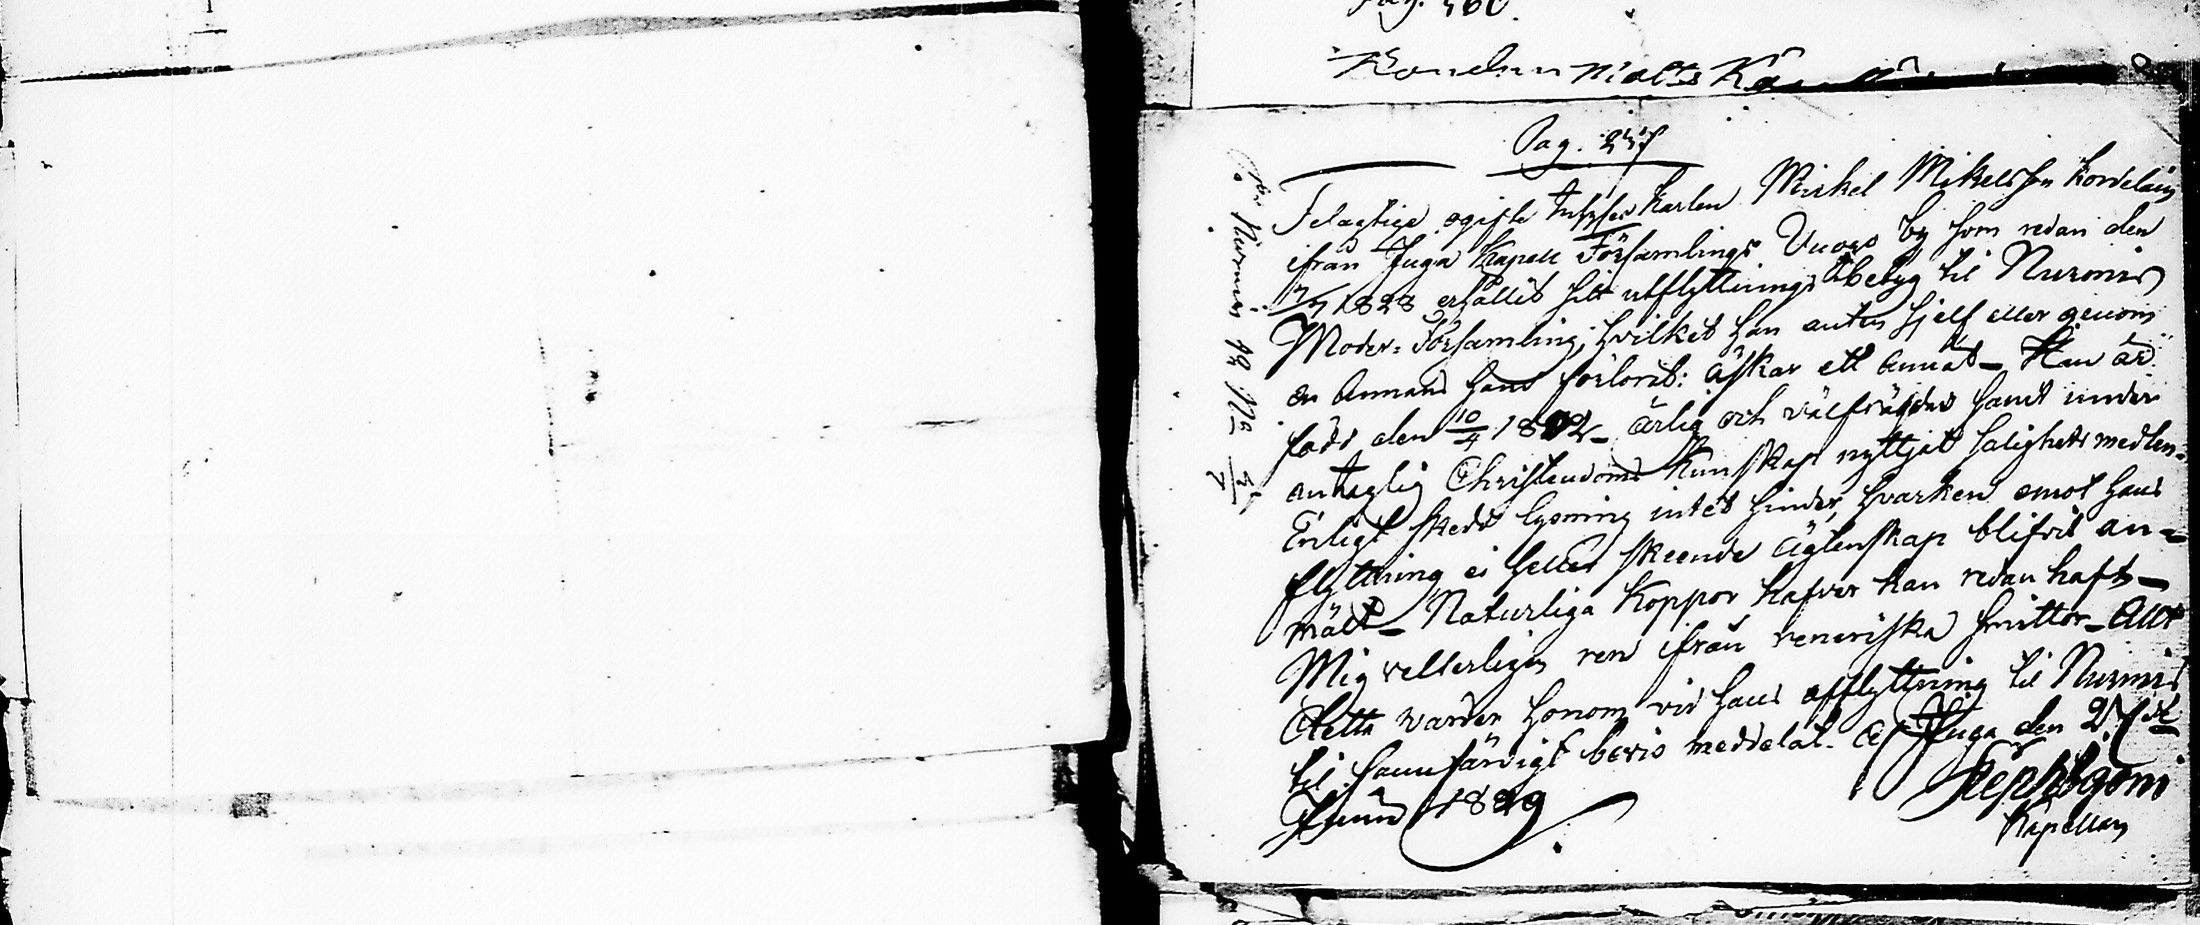 Pag. 460.
Matts
Pag. 247
Felagtige ogifte Karlen Mickel Mikelsson Kordelain
ifrån Juga Kapell Församlings Vuoxo by som redan den
1828 erhållit sitt utflyttnings betyg til Nurmis
Moder-Församling, hvilket han antin sjelf eller genom
en Annan hand förlorat: äskar ett Annat – Han är
född den 10/4 1802 – ärlig och välfrägdad samt under
antaglig Christendoms Kunskap nyttjat salighets medlen –
Enligt skedd lysning intet hinder, hvarken emot hans
flyttning ei heller skeende Ägtenskap blifvit an=
mält – Naturliga Koppor hafver han redan haft –
Mig vetterligen ren ifrån veneriska smittor – Allt
Detta varder honom vid hans afflyttning til Nurmis
til sannfärdigt bevis meddelat. Af Juga den 27de
Junii 1829
Kapellan
Nurmis 19 No